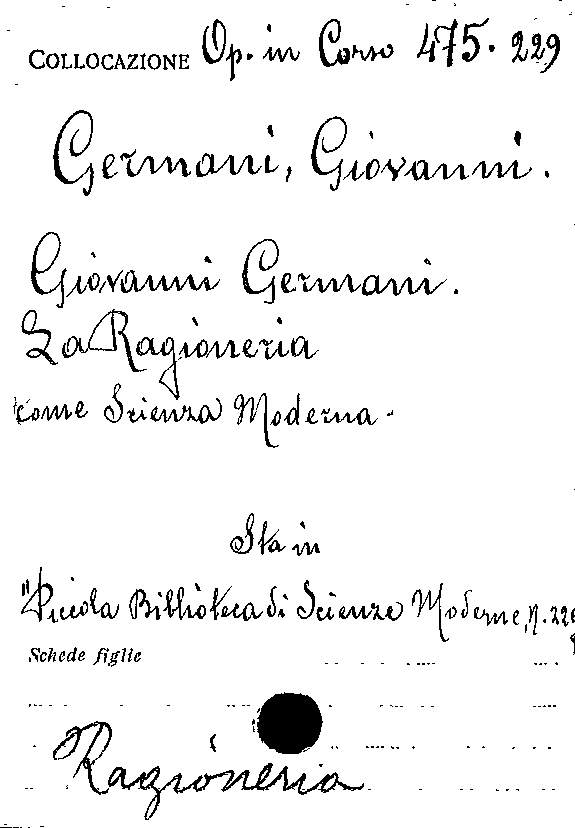 COLLOCAZIONE Op. in Corso 475. 229
Germani, Giovanni.
Giovanni Germani.
La Ragioneria
come Scienza Moderna.
Sta in
"Piccola Biblioteca di Scienze Moderne, N.
Schede figlie
Ragioneria